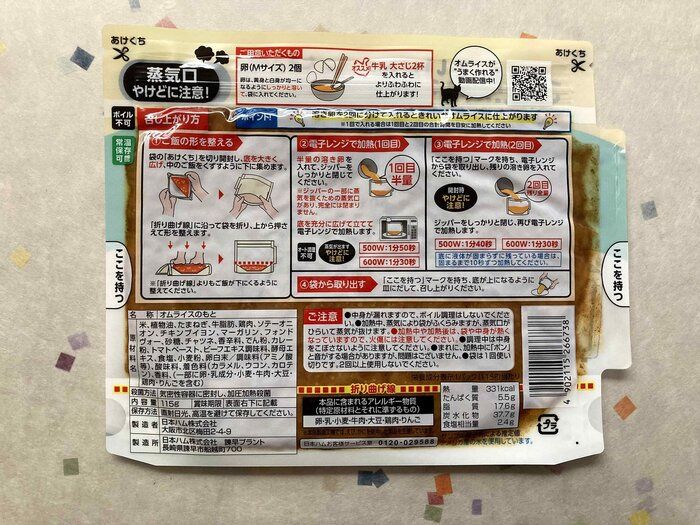 あけくち
あけくち
蒸気口
やけどに注意!
ご用意いただくもの
卵(Mサイズ) 2個
卵は、黄身と白身が均一に
なるようにしっかりと溶い
て、袋に入れてください。
オススメ
牛乳 大さじ2杯
を入れると
よりふわふわに
仕上がります!
オムライスが
"うまく作れる"
動画配信中!
ボイル
不可
常温
保存
可
召し上がり方
ポイント!
溶き卵を2回に分けて入れるときれいなオムライスに仕上がります
※1回で入れる場合は1回目と2回目の合計時間を目安に加熱してください
①ご飯の形を整える
袋の「あけくち」を切り開封し、底を大きく
広げ、中のご飯をくずすように下に集めます。
「折り曲げ線」に沿って袋を折り、上から押さ
えて形を整えます。
※「折り曲げ線」よりもご飯が下になるように
整えてください。
②電子レンジで加熱(1回目)
半量の溶き卵を
入れて、ジッパーを
しっかりと閉じて
ください。
※ジッパーの一部に蒸
気を抜くための蒸気口
があり、完全には閉まり
ません。
1回目
半量
底を充分に広げて立てて
電子レンジで加熱します。
オート調理
不可
蒸気が出ます
やけどに
注意!
500W:1分50秒
600W:1分30秒
③電子レンジで加熱(2回目)
「ここを持つ」マークを持ち、電子レンジ
から袋を取り出し、残りの溶き卵を入れて
ください。
開封時
やけどに
注意!
2回目
残り全量
ジッパーをしっかりと閉じ、再び電子レンジ
で加熱します。
500W:1分40秒
600W:1分30秒
底に液体が固まらずに残っている場合は、
固まるまで10秒ずつ加熱してください。
④袋から取り出す
「ここを持つ」マークを持ち、底が上になるように
皿にだして、召し上がりください。
ここを持つ
ここを持つ
名称
オムライスのもと
原材料名
米、植物油、たまねぎ、牛脂肪、鶏肉、ソテーオニ
オン、チキンブイヨン、マーガリン、フォンド
ヴォー、砂糖、チャツネ、香辛料、でん粉、カレ
ー粉、トマトペースト、ビーフエキス調味料、酵母エ
キス、食塩、小麦粉、卵白末/調味料(アミノ酸
等)、酸味料、着色料(カラメル、ウコン、カロテ
ン)、香料、(一部に卵・乳成分・小麦・牛肉・大豆・
鶏肉・りんごを含む)
殺菌方法
気密性容器に密封し、加圧加熱殺菌
内容量
115g
賞味期限
表面右下に記載
保存方法
直射日光、高温を避けて保存してください。
製造者
日本ハム株式会社
大阪市北区梅田2-4-9
製造所
日本ハム株式会社 諫早プラント
長崎県諫早市船越町700
ご注意
●中身が漏れますので、ボイル調理はしないでくださ
い。●加熱中、蒸気により袋がふくらみますが、蒸気口が
ひらいて蒸気が抜けます。●加熱中や加熱後は、袋や中身が熱く
なっていますので、火傷には注意してください。●調理中は中身
をこぼさないように注意してください。●まれに、加熱中に「ポン」
と音がする場合がありますが、問題はございません。●袋は1回使い
切りです。2回以上使用しないでください。
折り曲げ線
本品に含まれるアレルギー物質
(特定原材料とそれに準ずるもの)
卵・乳・小麦・牛肉・大豆・鶏肉・りんご
日本ハムお客様サービス室 0120-029588
熱量 331kcal
たんぱく質 5.5g
脂質 17.6g
炭水化物 37.7g
食塩相当量 2.4g
4 902115 266738
プラ